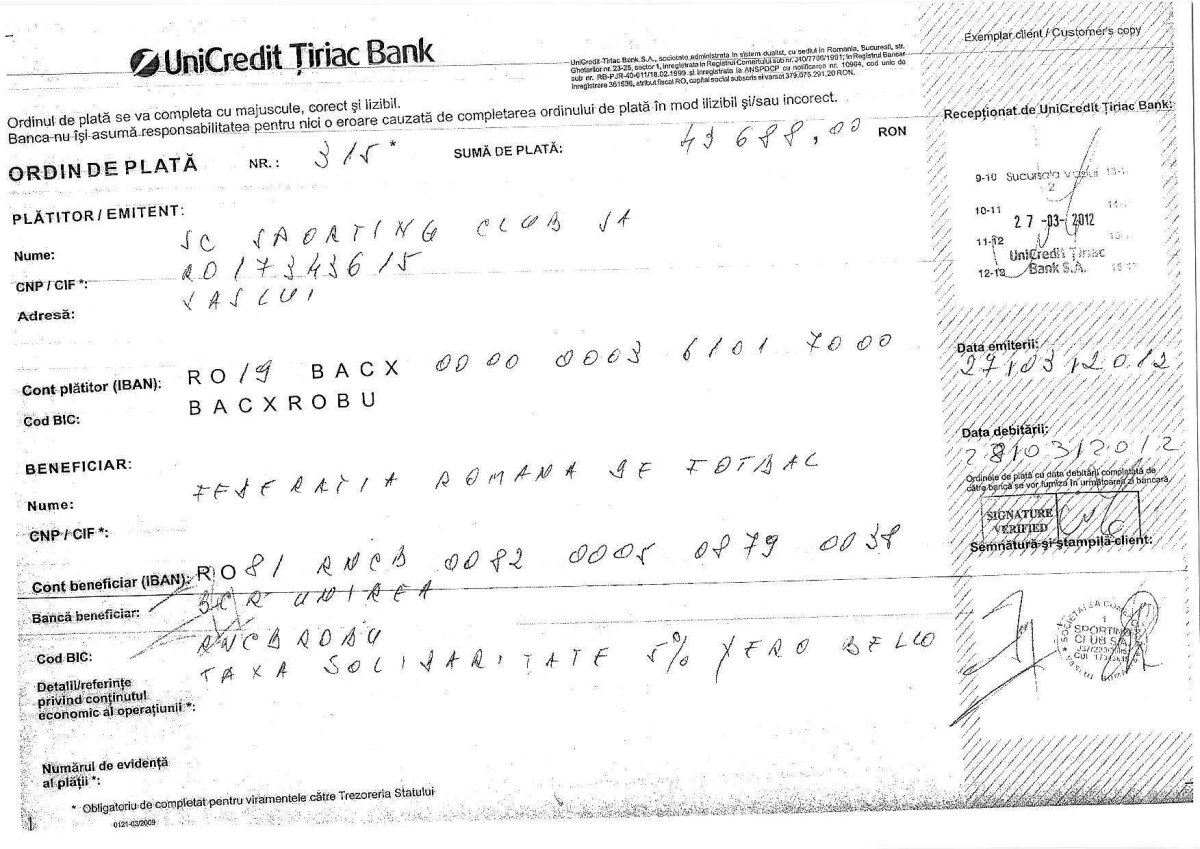 Exemplar client / Customer's copy
UniCredit Țiriac Bank
UniCredit Tiriac Bank S.A., societate administrata in sistem dualist, cu sediul in Romania, Bucuresti, str.
Ghetarilor nr. 23-25, sector 1, inregistrata in Registrul Comertului sub nr. J40/7706/1991, in Registrul Bancar
sub nr. RB-PJR-40-011/18.02.1999 si inregistrata la ANSPDCP cu notificarea nr. 10964, cod unic de
inregistrare 361536, atribut fiscal RO, capital social subscris si varsat 379.075.291,20 RON.
Ordinul de plată se va completa cu majuscule, corect şi lizibil.
Banca nu îşi asumă responsabilitatea pentru nici o eroare cauzată de completarea ordinului de plată în mod ilizibil şi/sau incorect.
Recepţionat de UniCredit Ţiriac Bank:
ORDIN DE PLATĂ NR.: 315 * SUMĂ DE PLATĂ: 43 688,00 RON
9-10 Sucursala Vaslui
2
10-11
27 -03- 2012
11-12
UniCredit Țiriac
12-13 Bank S.A.
PLĂTITOR / EMITENT:
Nume: SC SPORTING CLUB SA
CNP / CIF *: RO17343615
Adresă: VASLUI
Data emiterii:
27/03/2012
Cont plătitor (IBAN): RO19 BACX 0000 0003 6101 7000
Cod BIC: BACXROBU
Data debitării:
28/03/2012
Ordinele de plată cu data debitării completată de
către bancă se vor furniza în următoarea zi bancară.
SIGNATURE
VERIFIED
BENEFICIAR:
Nume: FEDERATIA ROMANA DE FOTBAL
CNP / CIF *:
Cont beneficiar (IBAN): RO81 RNCB 0082 0005 0879 0038
Bancă beneficiar: BCR UNIREA
Cod BIC: RNCBROBU
Semnătură şi ştampilă client:
SOCIETATEA
1
SPORTING
CLUB S.A.
Detalii/referinţe
privind conţinutul
economic al operaţiunii *:
TAXA SOLIDARITATE 5% YERO BELLO
Numărul de evidenţă
al plăţii *:
* Obligatoriu de completat pentru viramentele către Trezoreria Statului
0121-03/2009